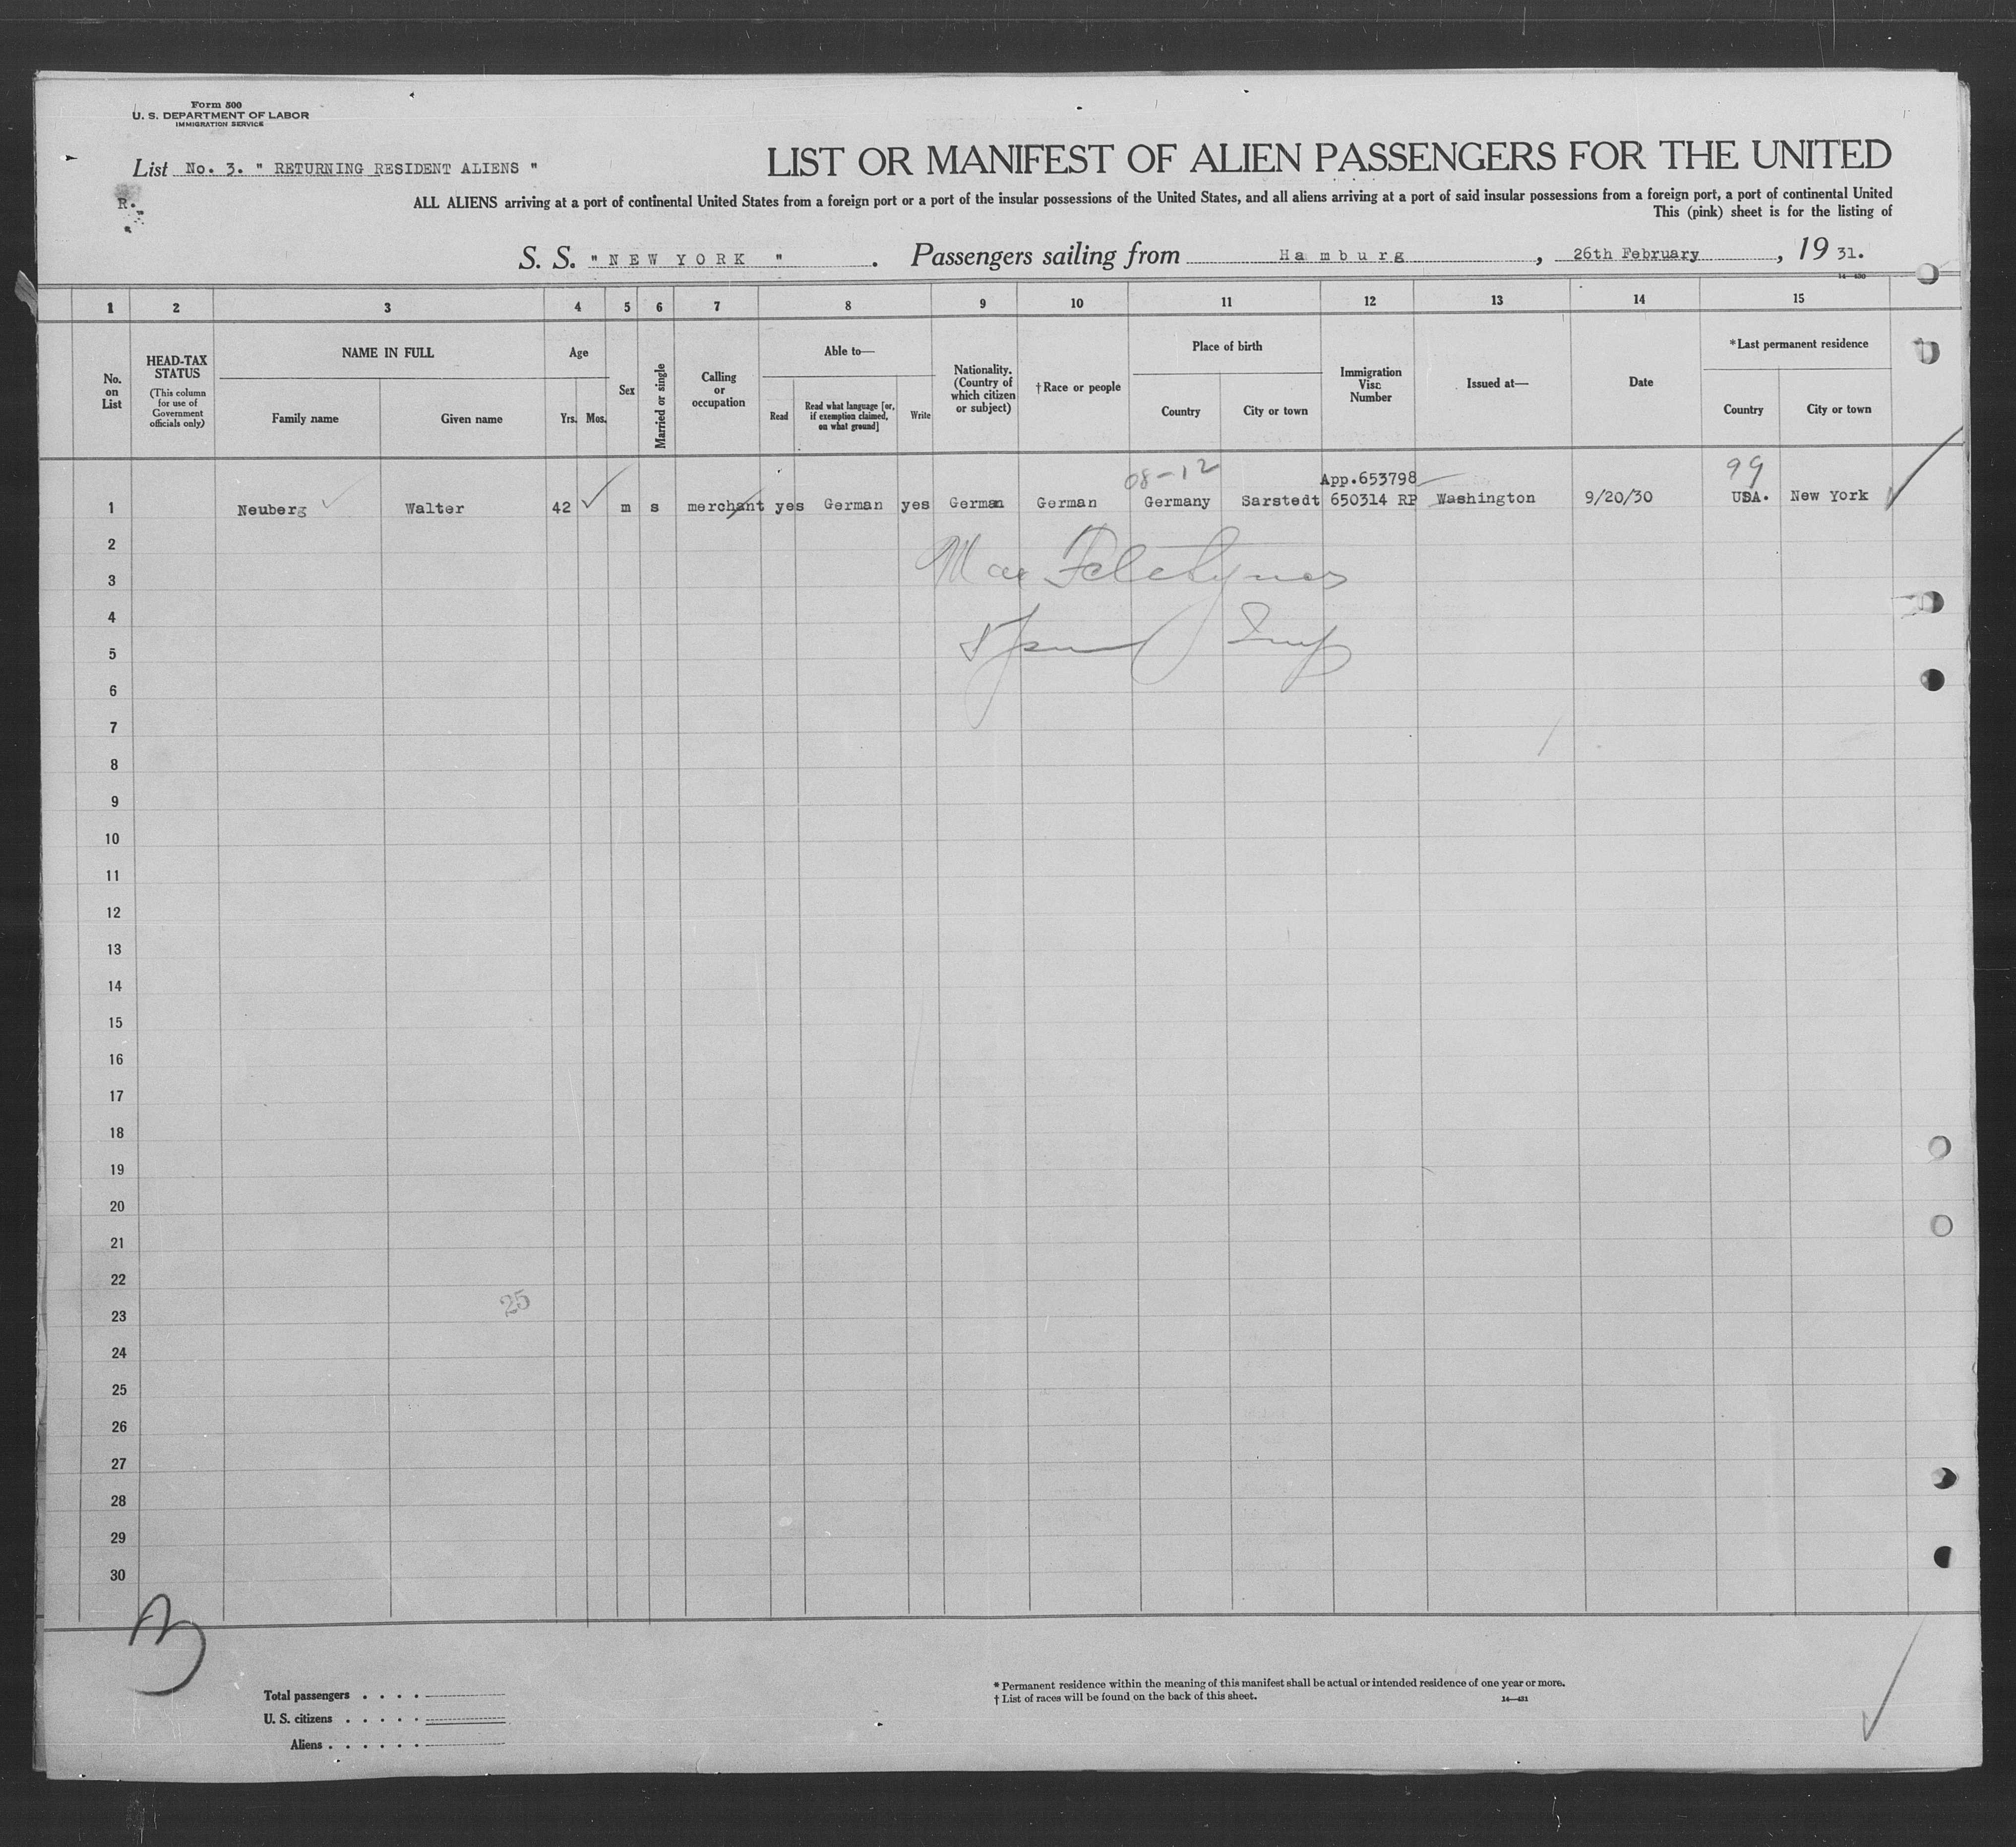 Form 500
U. S. DEPARTMENT OF LABOR
IMMIGRATION SERVICE
List No. 3. " RETURNING RESIDENT ALIENS "
R.
LIST OR MANIFEST OF ALIEN PASSENGERS FOR THE UNITED
ALL ALIENS arriving at a port of continental United States from a foreign port or a port of the insular possessions of the United States, and all aliens arriving at a port of said insular possessions from a foreign port, a port of continental United
This (pink) sheet is for the listing of
S. S. " NEW YORK ". Passengers sailing from Hamburg, 26th February, 19 31.
14—430
1 2 3 4 5 6 7 8 9 10 11 12 13 14 15
No. on List
HEAD-TAX STATUS
(This column for use of Government officials only)
NAME IN FULL
Family name Given name
Age
Yrs. Mos.
Sex
Married or single
Calling or occupation
Able to—
Read
Read what language [or, if exemption claimed, on what ground]
Write
Nationality. (Country of which citizen or subject)
†Race or people
Place of birth
Country City or town
Immigration Visa Number
Issued at—
Date
*Last permanent residence
Country City or town
08-12 App.653798 99
1 Neuberg Walter 42 m s merchant yes German yes German German Germany Sarstedt 650314 RP Washington 9/20/30 USA. New York
2
3
4
5
6
7
8
9
10
11
12
13
14
15
16
17
18
19
20
21
22
25
23
24
25
26
27
28
29
30
3
Total passengers
U. S. citizens
Aliens
* Permanent residence within the meaning of this manifest shall be actual or intended residence of one year or more.
† List of races will be found on the back of this sheet.
14—431